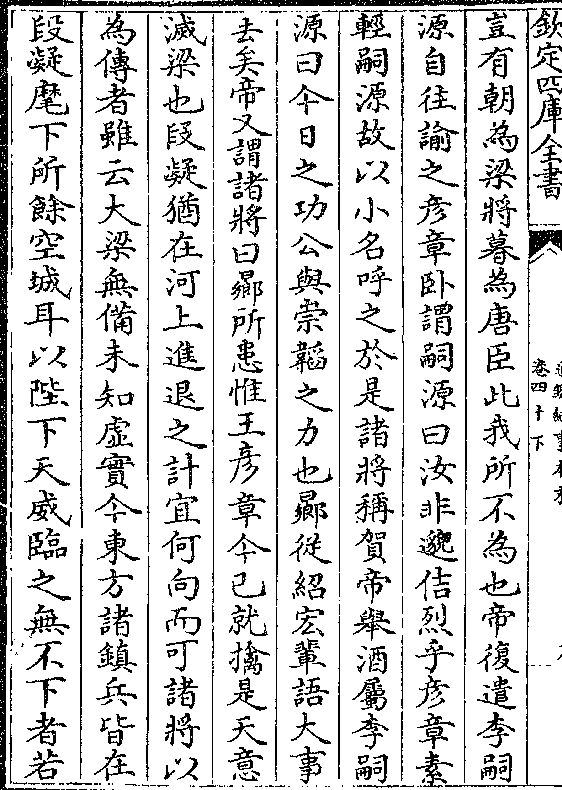 欽定四庫全書
卷四十下
豈有朝為梁將暮為唐臣此我所不為也帝復遣李嗣
源自往諭之彦章卧謂嗣源曰汝非邈佶烈乎彦章素
輕嗣源故以小名呼之於是諸將稱賀帝舉酒屬李嗣
源曰今日之功公與崇韜之力也曏從紹宏輩語大事
去矣帝又謂諸將曰曏所患惟王彦章今已就擒是天意
滅梁也段凝猶在河上進退之計宜何向而可諸將以
為傳者雖云大梁無備未知虚實今東方諸鎮兵皆在
段凝麾下所餘空城耳以陛下天威臨之無不下者若